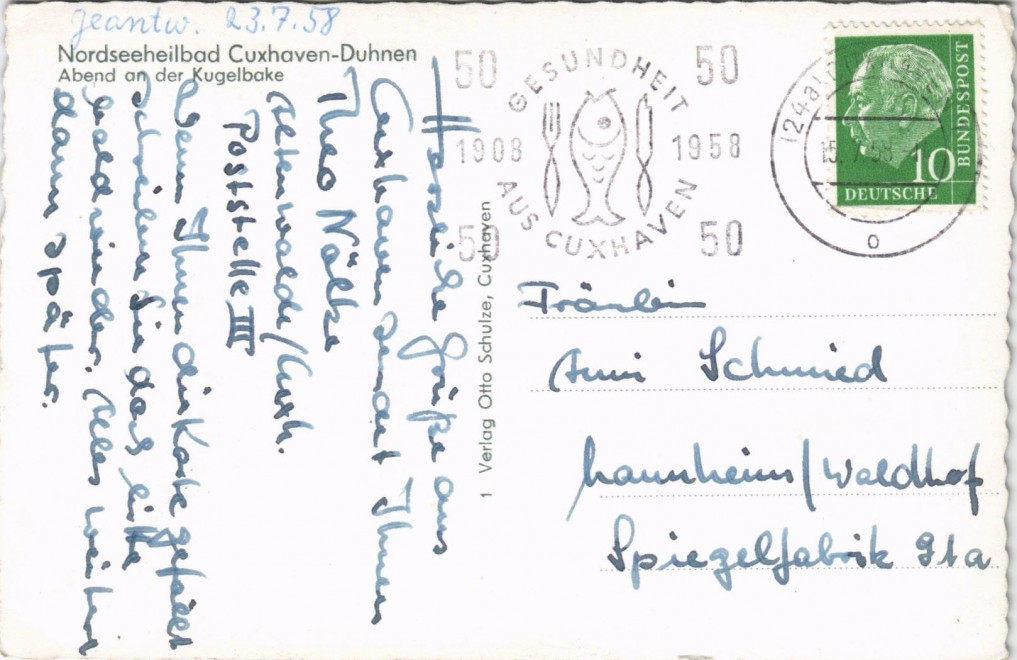 geantw. 23.7.58
Nordseeheilbad Cuxhaven-Duhnen
Abend an der Kugelbake
50 50
GESUNDHEIT
1908 1958
AUS CUXHAVEN
50 50
124a CUXHAVEN
15.7.58
o
10
DEUTSCHE
BUNDESPOST
Herzliche Grüße aus
Cuxhaven sendet Ihnen
Theo Nölke
Altenwalde/Cuxh.
Poststelle III
Wenn Ihnen die Karte gefällt
schreiben Sie doch bitte
bald wieder. Alles weitere
dann später.
1 Verlag Otto Schulze, Cuxhaven
Fräulein
Anni Schmied
Mannheim/Waldhof
Spiegelfabrik 91a